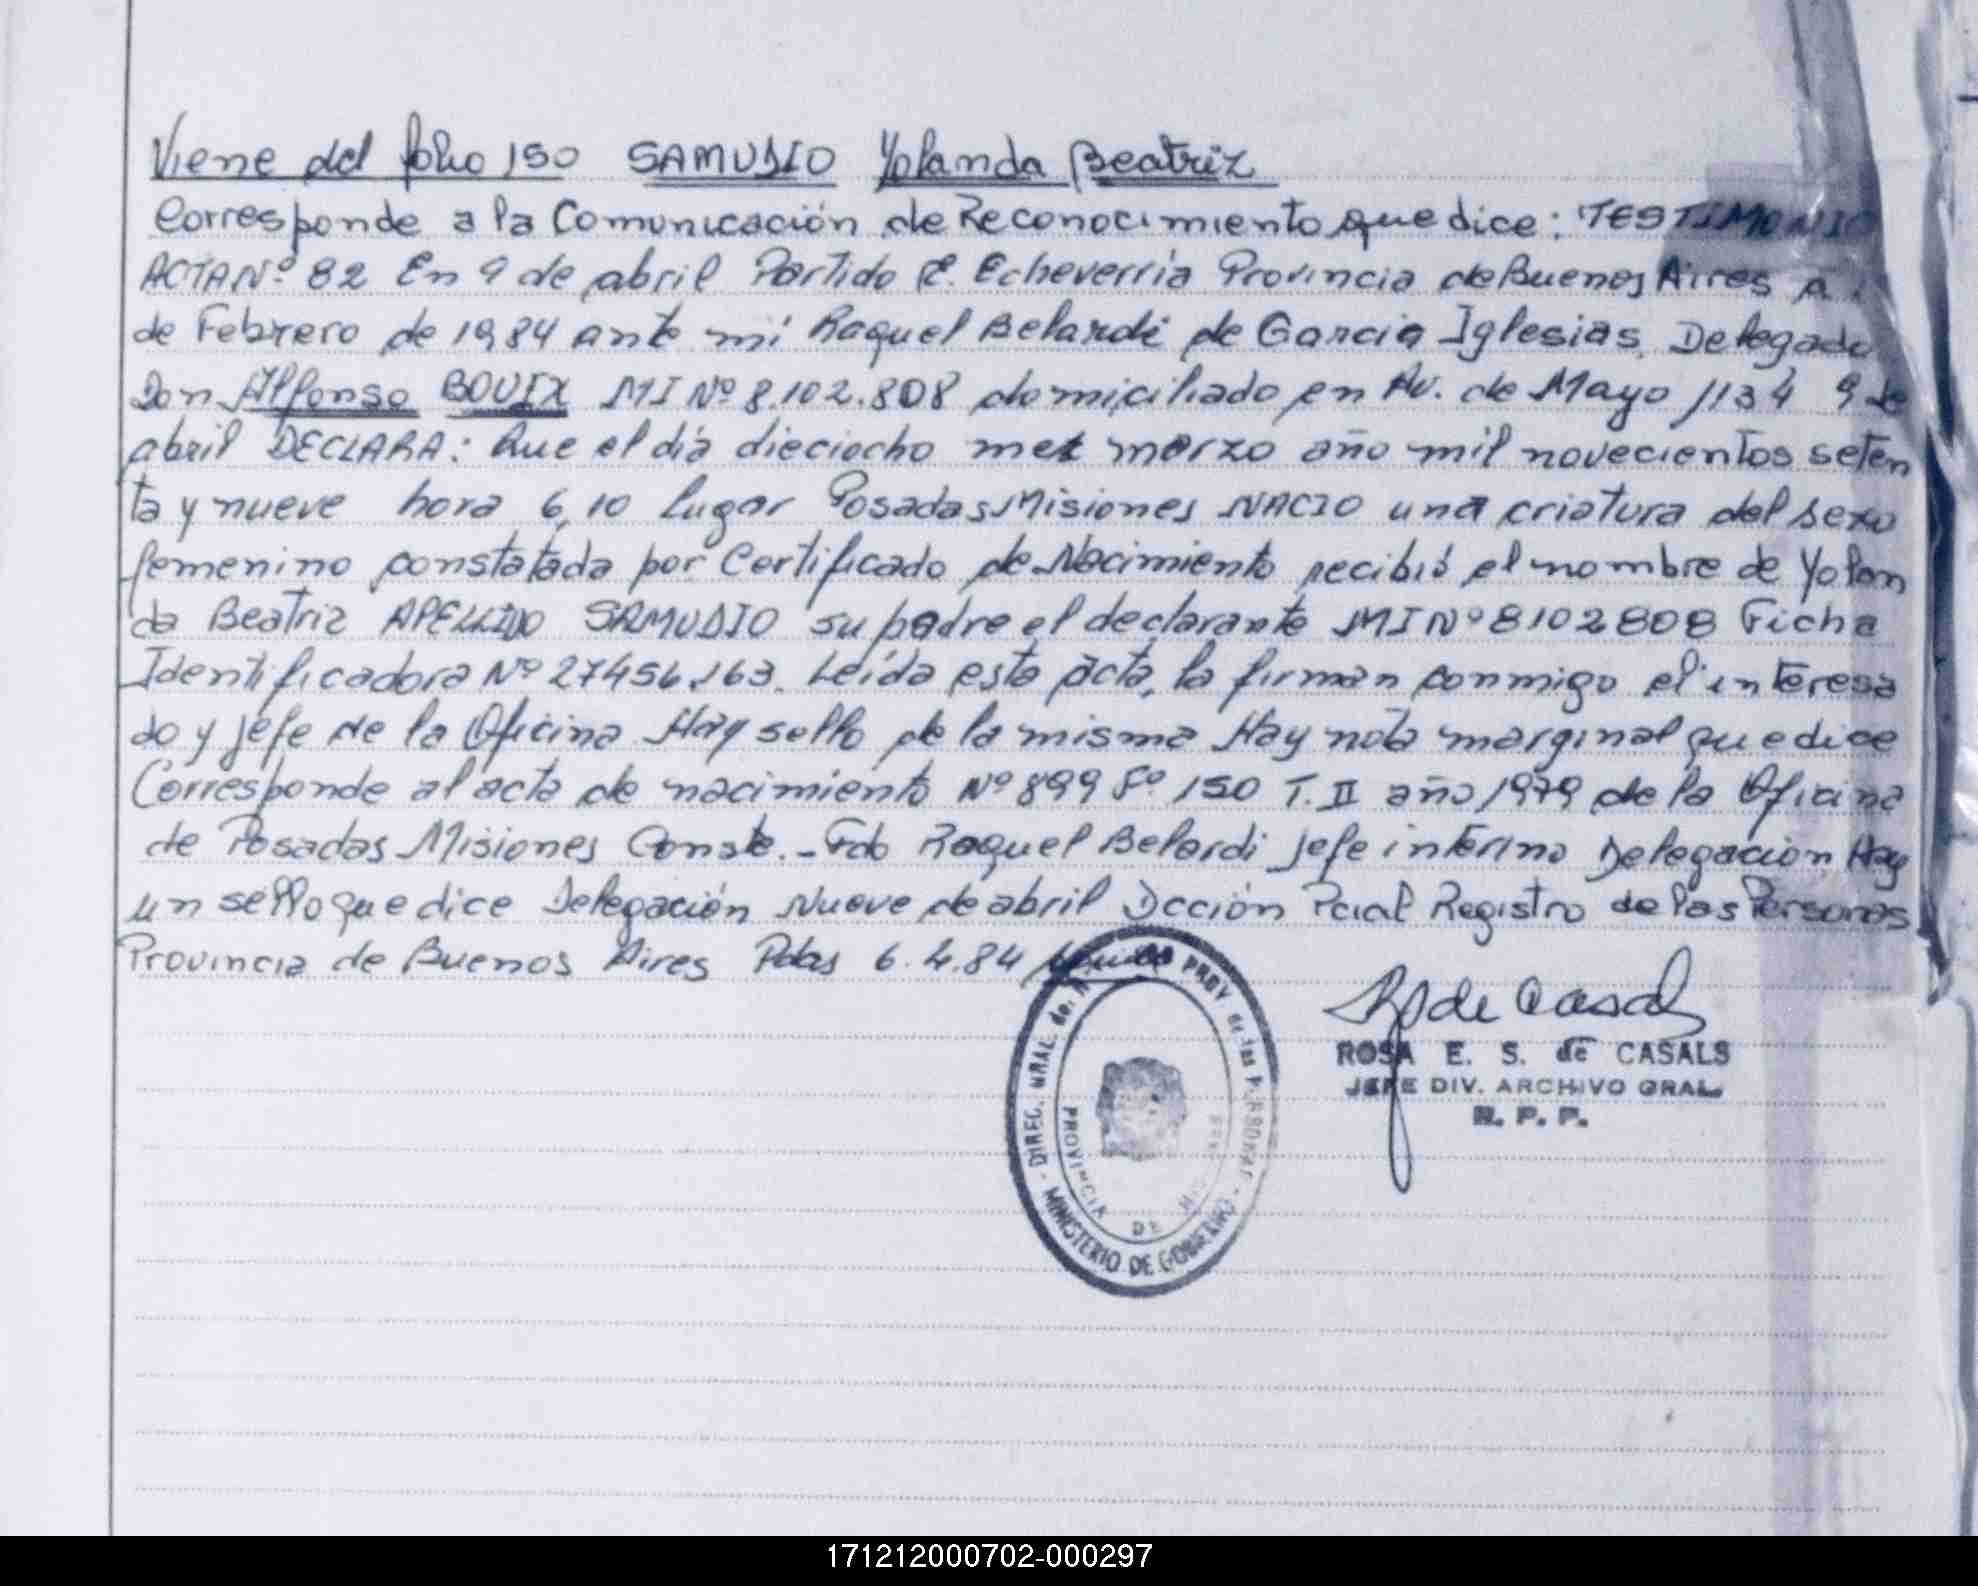 Viene del folio 150 SAMUDIO Yolanda Beatriz
Corresponde a la Comunicación de Reconocimiento que dice: TESTIMONIO
ACTA Nº 82 En 9 de abril Partido E. Echeverria Provincia de Buenos Aires a
de Febrero de 1984 ante mi Raquel Belardi de Garcia Iglesias Delegado
Don Alfonso BOUIX MI Nº 8.102.808 domiciliado en Av. de Mayo 1134 9 de
abril DECLARA: Que el día dieciocho mes marzo año mil novecientos seten
ta y nueve hora 6,10 Lugar Posadas Misiones NACIO una criatura del sexo
femenino constatada por Certificado de Nacimiento recibió el nombre de Yolan
da Beatriz APELLIDO SAMUDIO su padre el declarante MI Nº 8102808 Ficha
Identificadora Nº 27456.163. Leída esta acta, la firman conmigo el interesa
do y jefe de la Oficina Hay sello de la misma Hay nota marginal que dice
Corresponde al acta de nacimiento Nº 899 Fº 150 T. II año 1979 de la Oficina
de Posadas Misiones Conste.- Fdo Raquel Belardi jefe interino Delegacion Hay
un sello que dice Delegación Nueve de abril Dcción Pcial Registro de las Personas
Provincia de Buenos Aires Pdas 6.4.84
DIREC. GRAL. del PROV de las PERSONAS
PROVINCIA DE MISIONES
MINISTERIO DE GOBIERNO
R de Casals
ROSA E. S. de CASALS
JEFE DIV. ARCHIVO GRAL.
R. P. P.
171212000702-000297